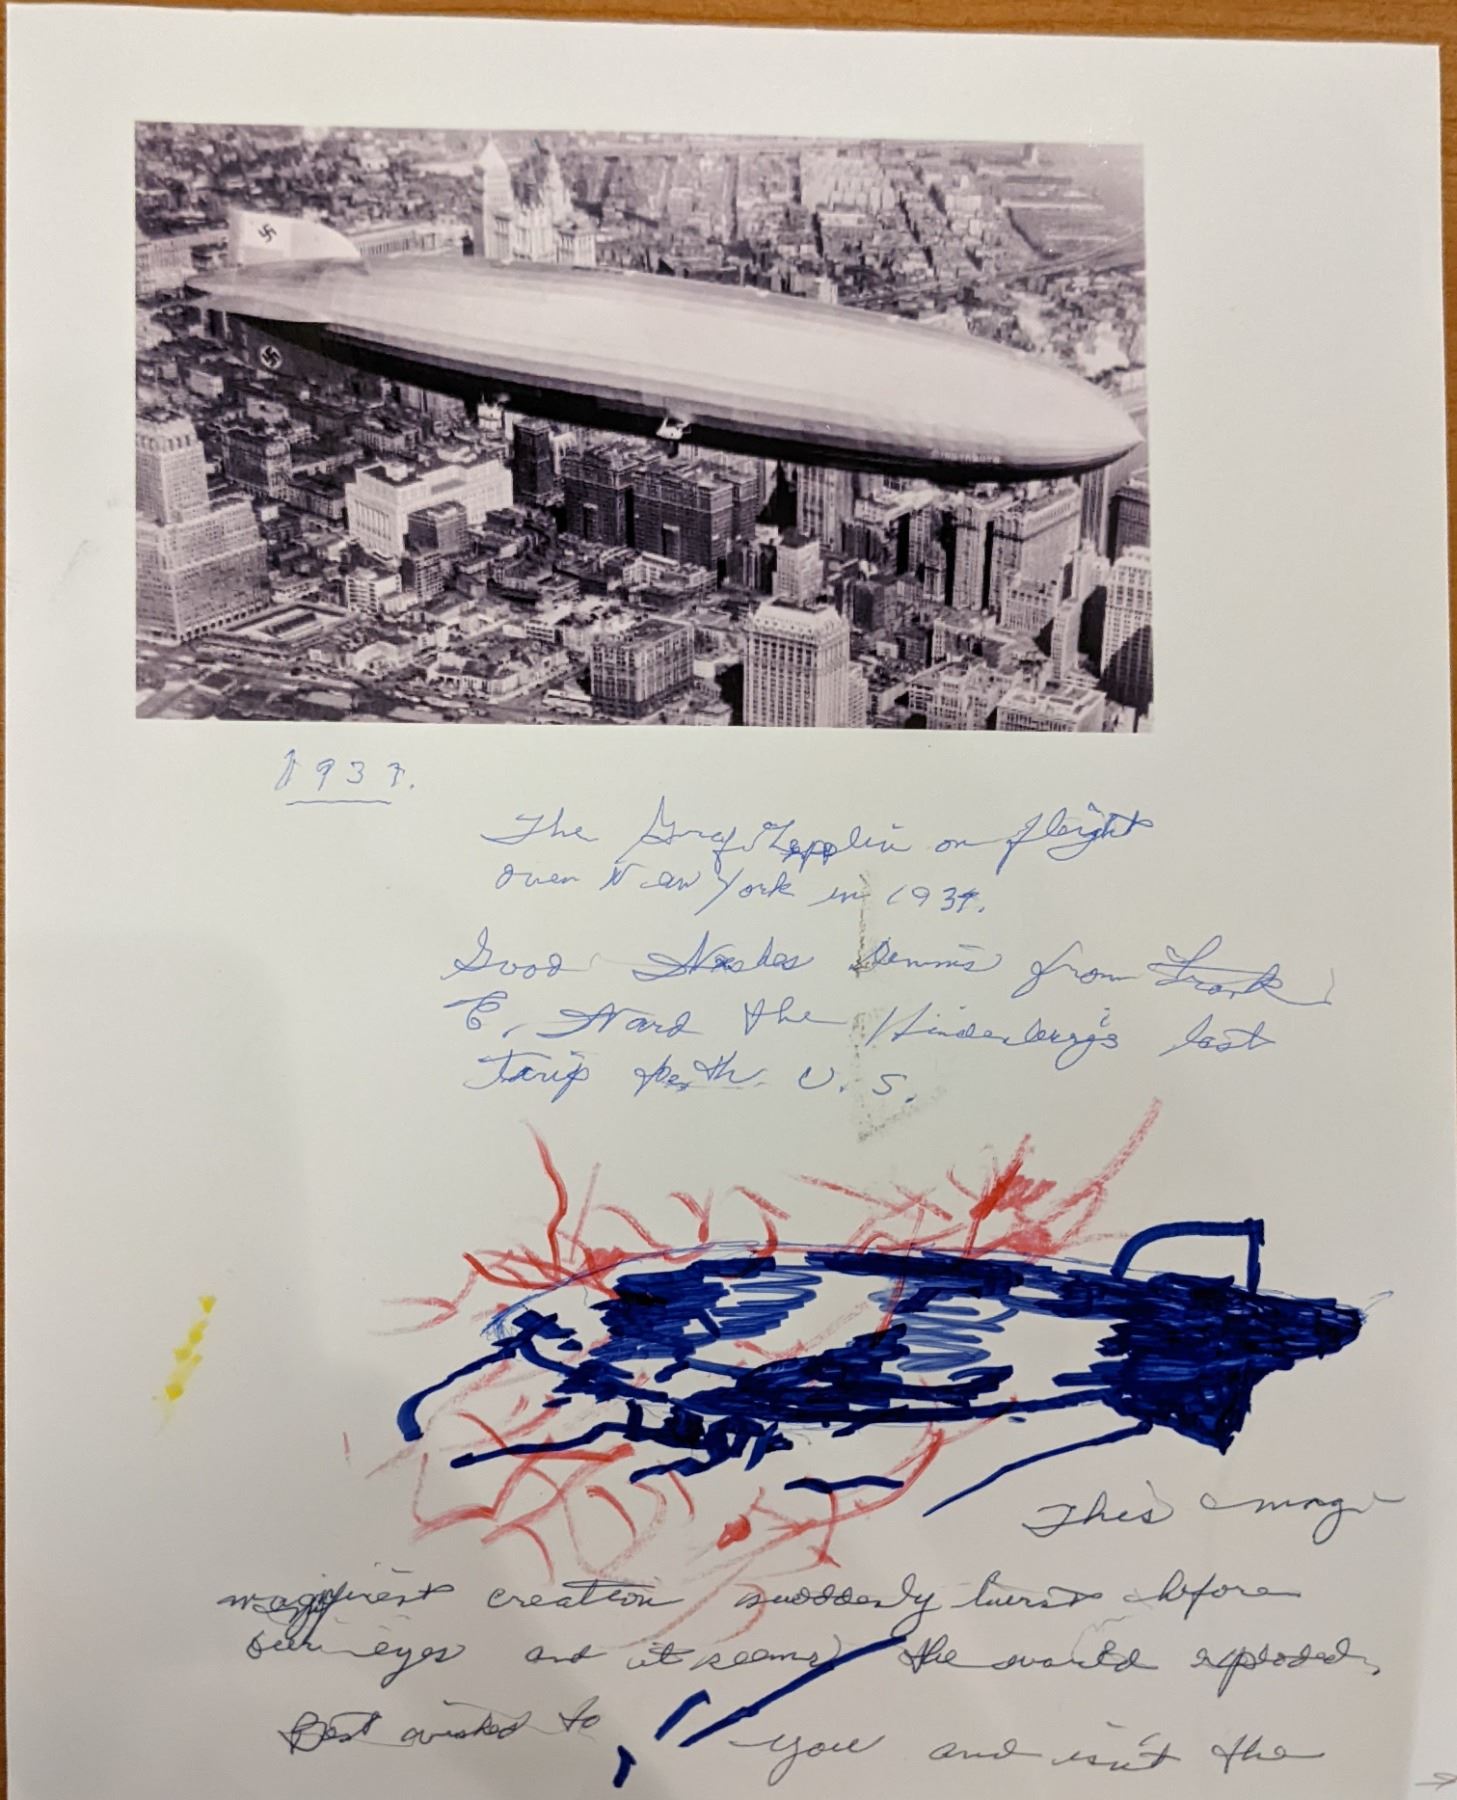 1937.
The Graf Zepplin on fleight
over New York in 1937.
Good Dennis from Frank
E. Ward the Hindenburg's last
Trip U.S.
This
magnificent creation suddenly burst before
our eyes and it seems the world exploded,
Best wishes to you and isn't the